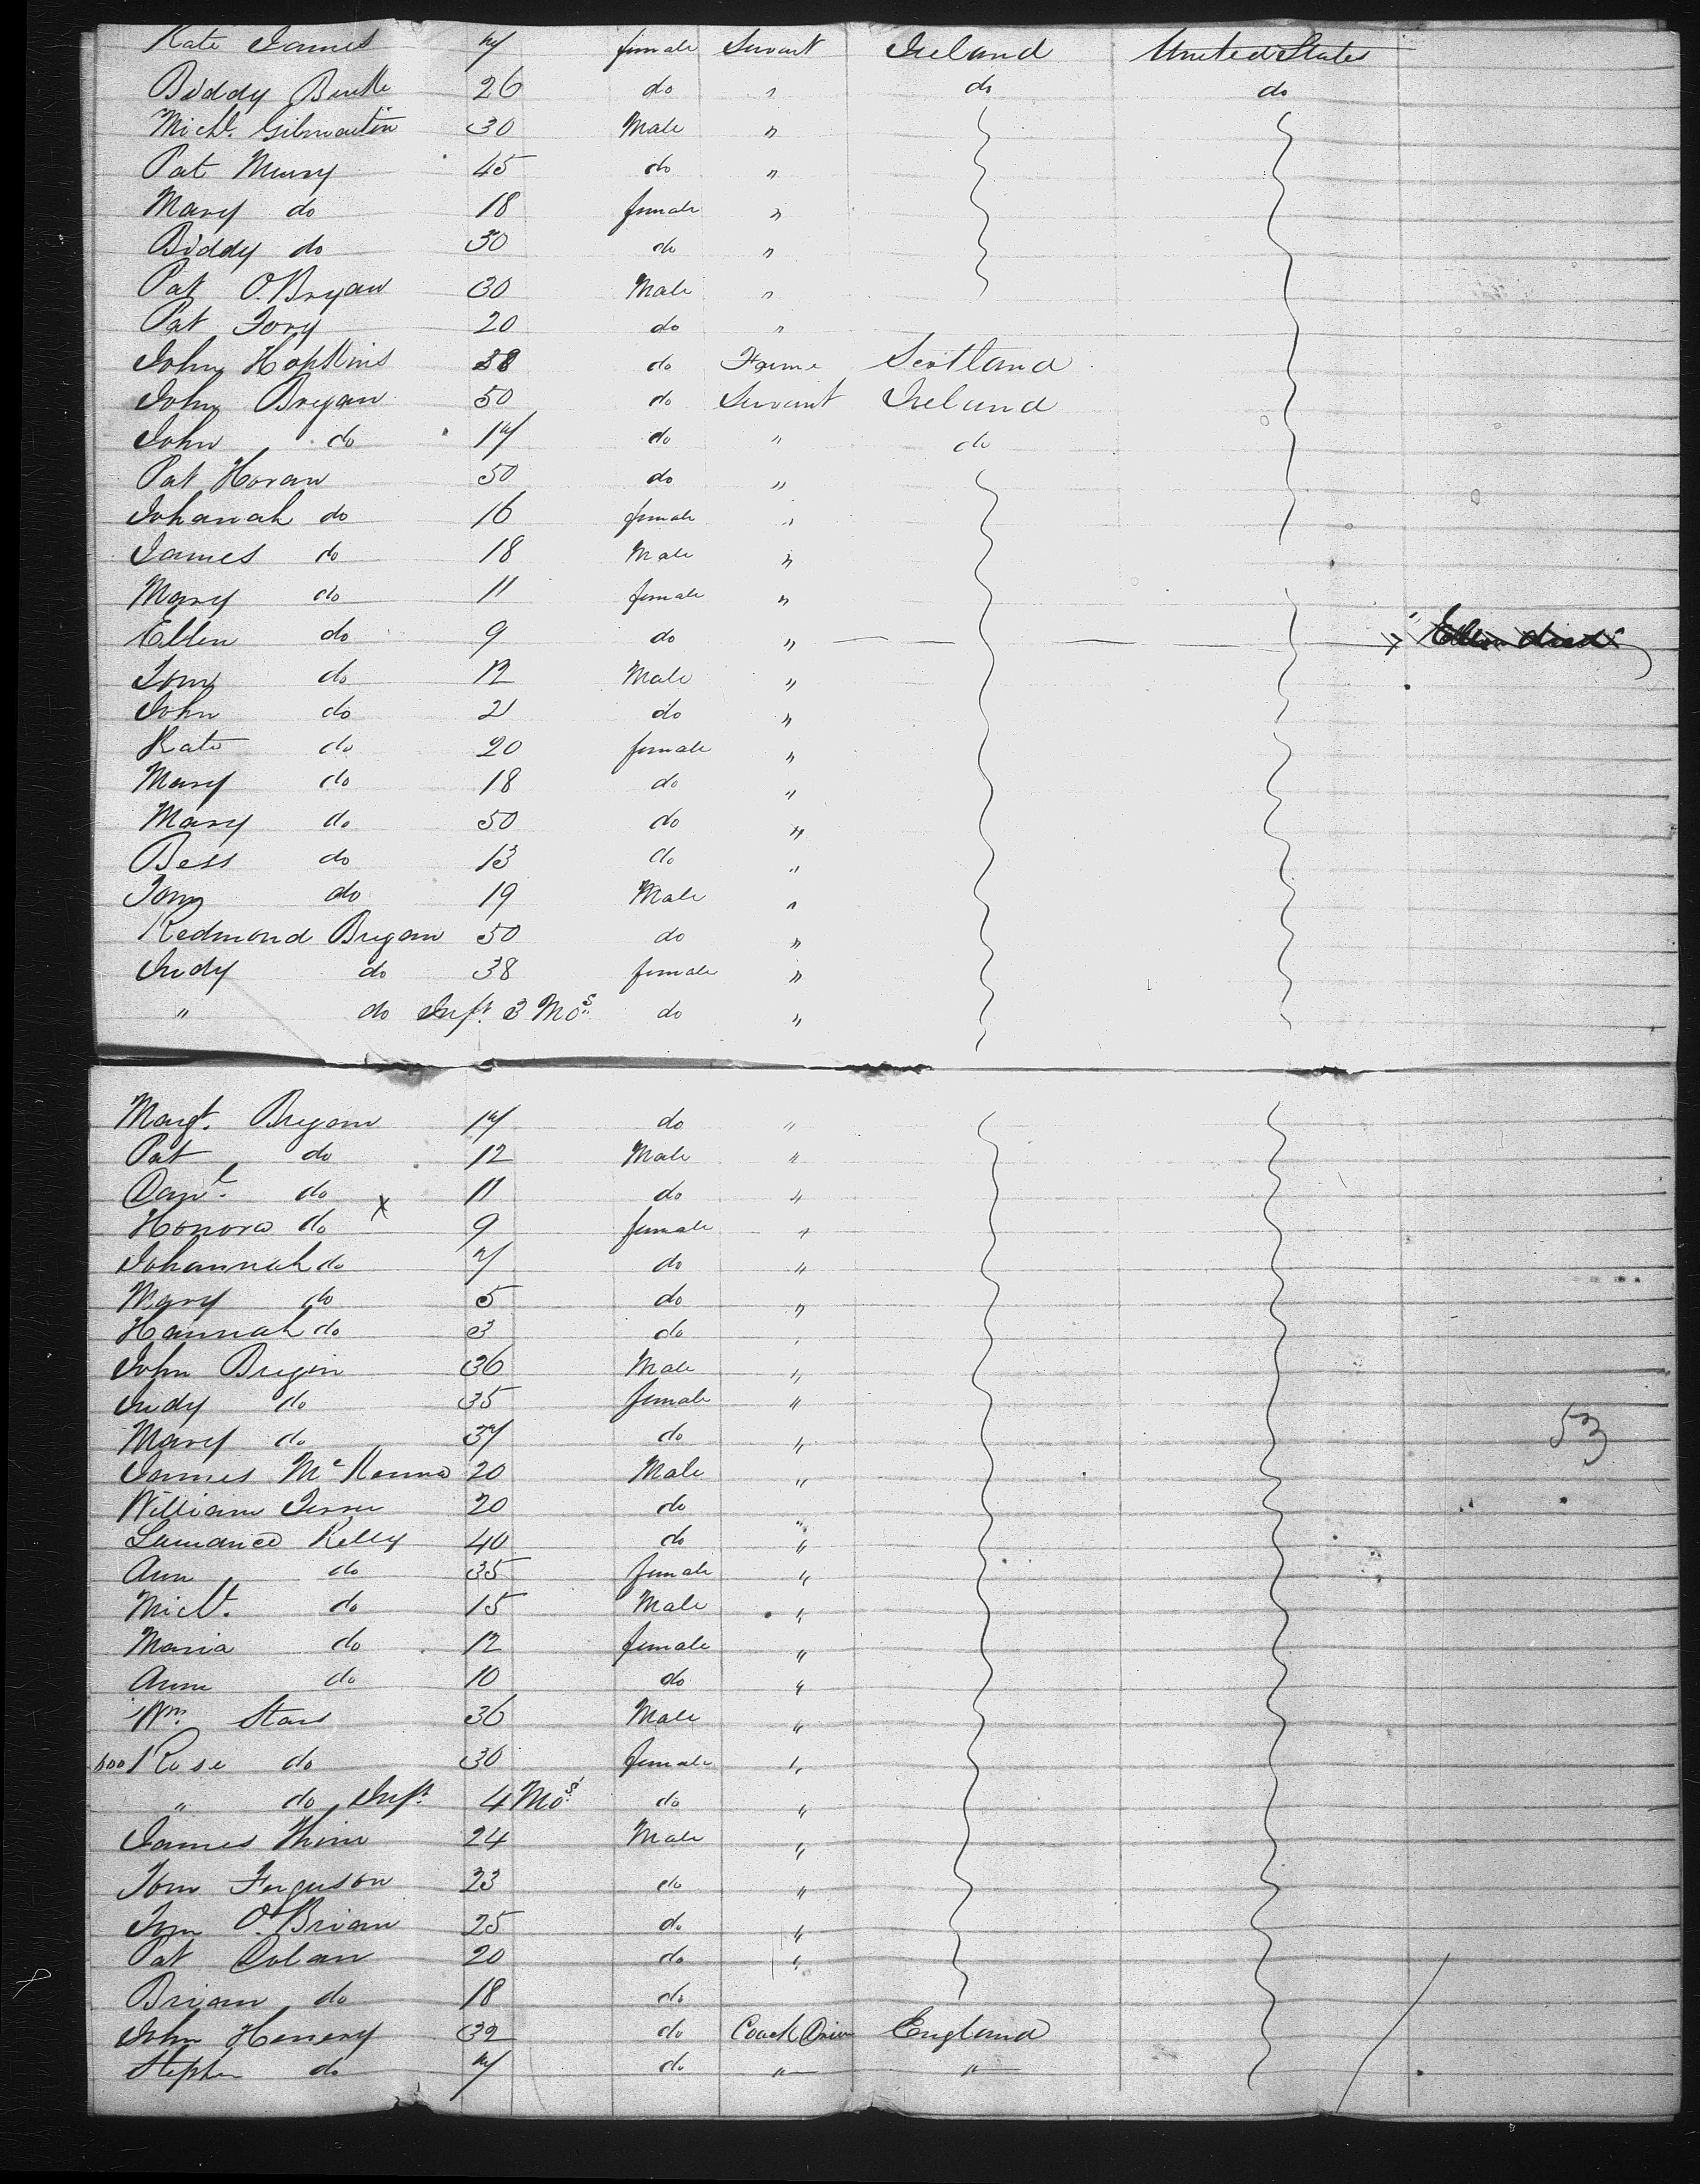 Kate James 7 female Servant Ireland United States
Biddy Burke 26 do " do do
Michl. Gilmartin 30 Male "
Pat Murry 45 do "
Mary do 18 female "
Biddy do 30 do "
Pat O.Bryan 30 Male "
Pat Tory 20 do "
John Hopkins 38 do Farme Scotland
John Bryan 50 do Servant Ireland
John do 17 do " do
Pat Horan 50 do "
Johanah do 16 female "
James do 18 Male "
Mary do 11 female "
Ellen do 9 do " " Ellen died "
Tom do 12 Male "
John do 21 do "
Kate do 20 female "
Mary do 18 do "
Mary do 50 do "
Bess do 13 do "
Tom do 19 Male "
Redmond Bryan 50 do "
Judy do 38 female "
" do Inft. 3 Mos. do "
Margt. Bryan 17 do "
Pat do 12 Male "
Danl. do 11 do "
Honora do x 9 female "
Johannah do 7 do "
Mary do 5 do "
Hannah do 3 do "
John Bryin 36 Male "
Judy do 35 female "
Mary do 37 do " 53
James McKenna 20 Male "
William 20 do "
Kelly 40 do "
Ann do 35 female "
Michl. do 15 Male "
Maria do 12 female "
Anne do 10 do "
Wm. Stars 36 Male "
600 Rose do 30 female "
" do Inft. 4 Mos. do "
James 24 Male "
Tom Ferguson 23 do "
Tom O.Brian 25 do "
Pat Dolan 20 do "
Brian do 18 do
John Henery 32 do Coach Driver England
Stephen do 7 do " "